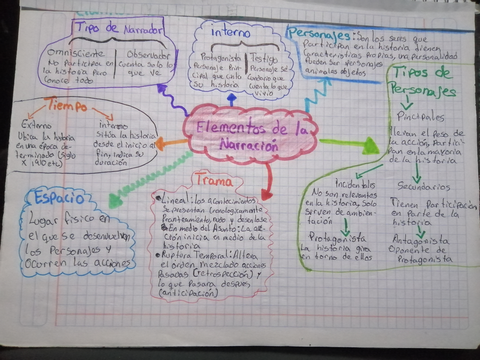 Tipo de Narrador
Omnisciente
No participa en
la historia pero
conoce todo
Observador
Cuenta solo lo
que ve
Interno
Protagonista
Personaje Prin-
cipal que
su historia
Testigo
Personaje Se-
cundario que
cuenta lo que
vivio
Personajes: Son los seres que
Participan en la historia, tienen
Características propias, una personalidad
Pueden ser personajes
animales objetos
Tipos de
Personajes
Principales
llevan el peso de
la acción, Partici-
pan en la mayoría
de la historia
Secundarios
Tienen Participación
en parte de la
historia
Antagonista
oponente de
Protagonista
Incidentales
No son relevantes
en la historia, solo
sirven de ambien-
tación
Protagonista
La historia gira
en torno de ellos
Elementos de la
Narración
Tiempo
Externo
Ubica la historia
en una época de-
terminada (siglo
X, 1910 etc)
Interno
Sitúa la historia
desde el inicio al
fin, indica su
duración
Espacio
Lugar físico en
el que se desenvuelven
los Personajes y
Ocurren las acciones
Trama
Lineal: los acontecimientos
Se presentan cronologicamente
Planteamiento nudo y desenlace
En medio del Asunto: La ac-
ción inicia en medio de la
historia
Ruptura Temporal: Altera
el orden, mezclado acciones
Pasadas (retrospección) y
lo que pasara despues
(anticipación)